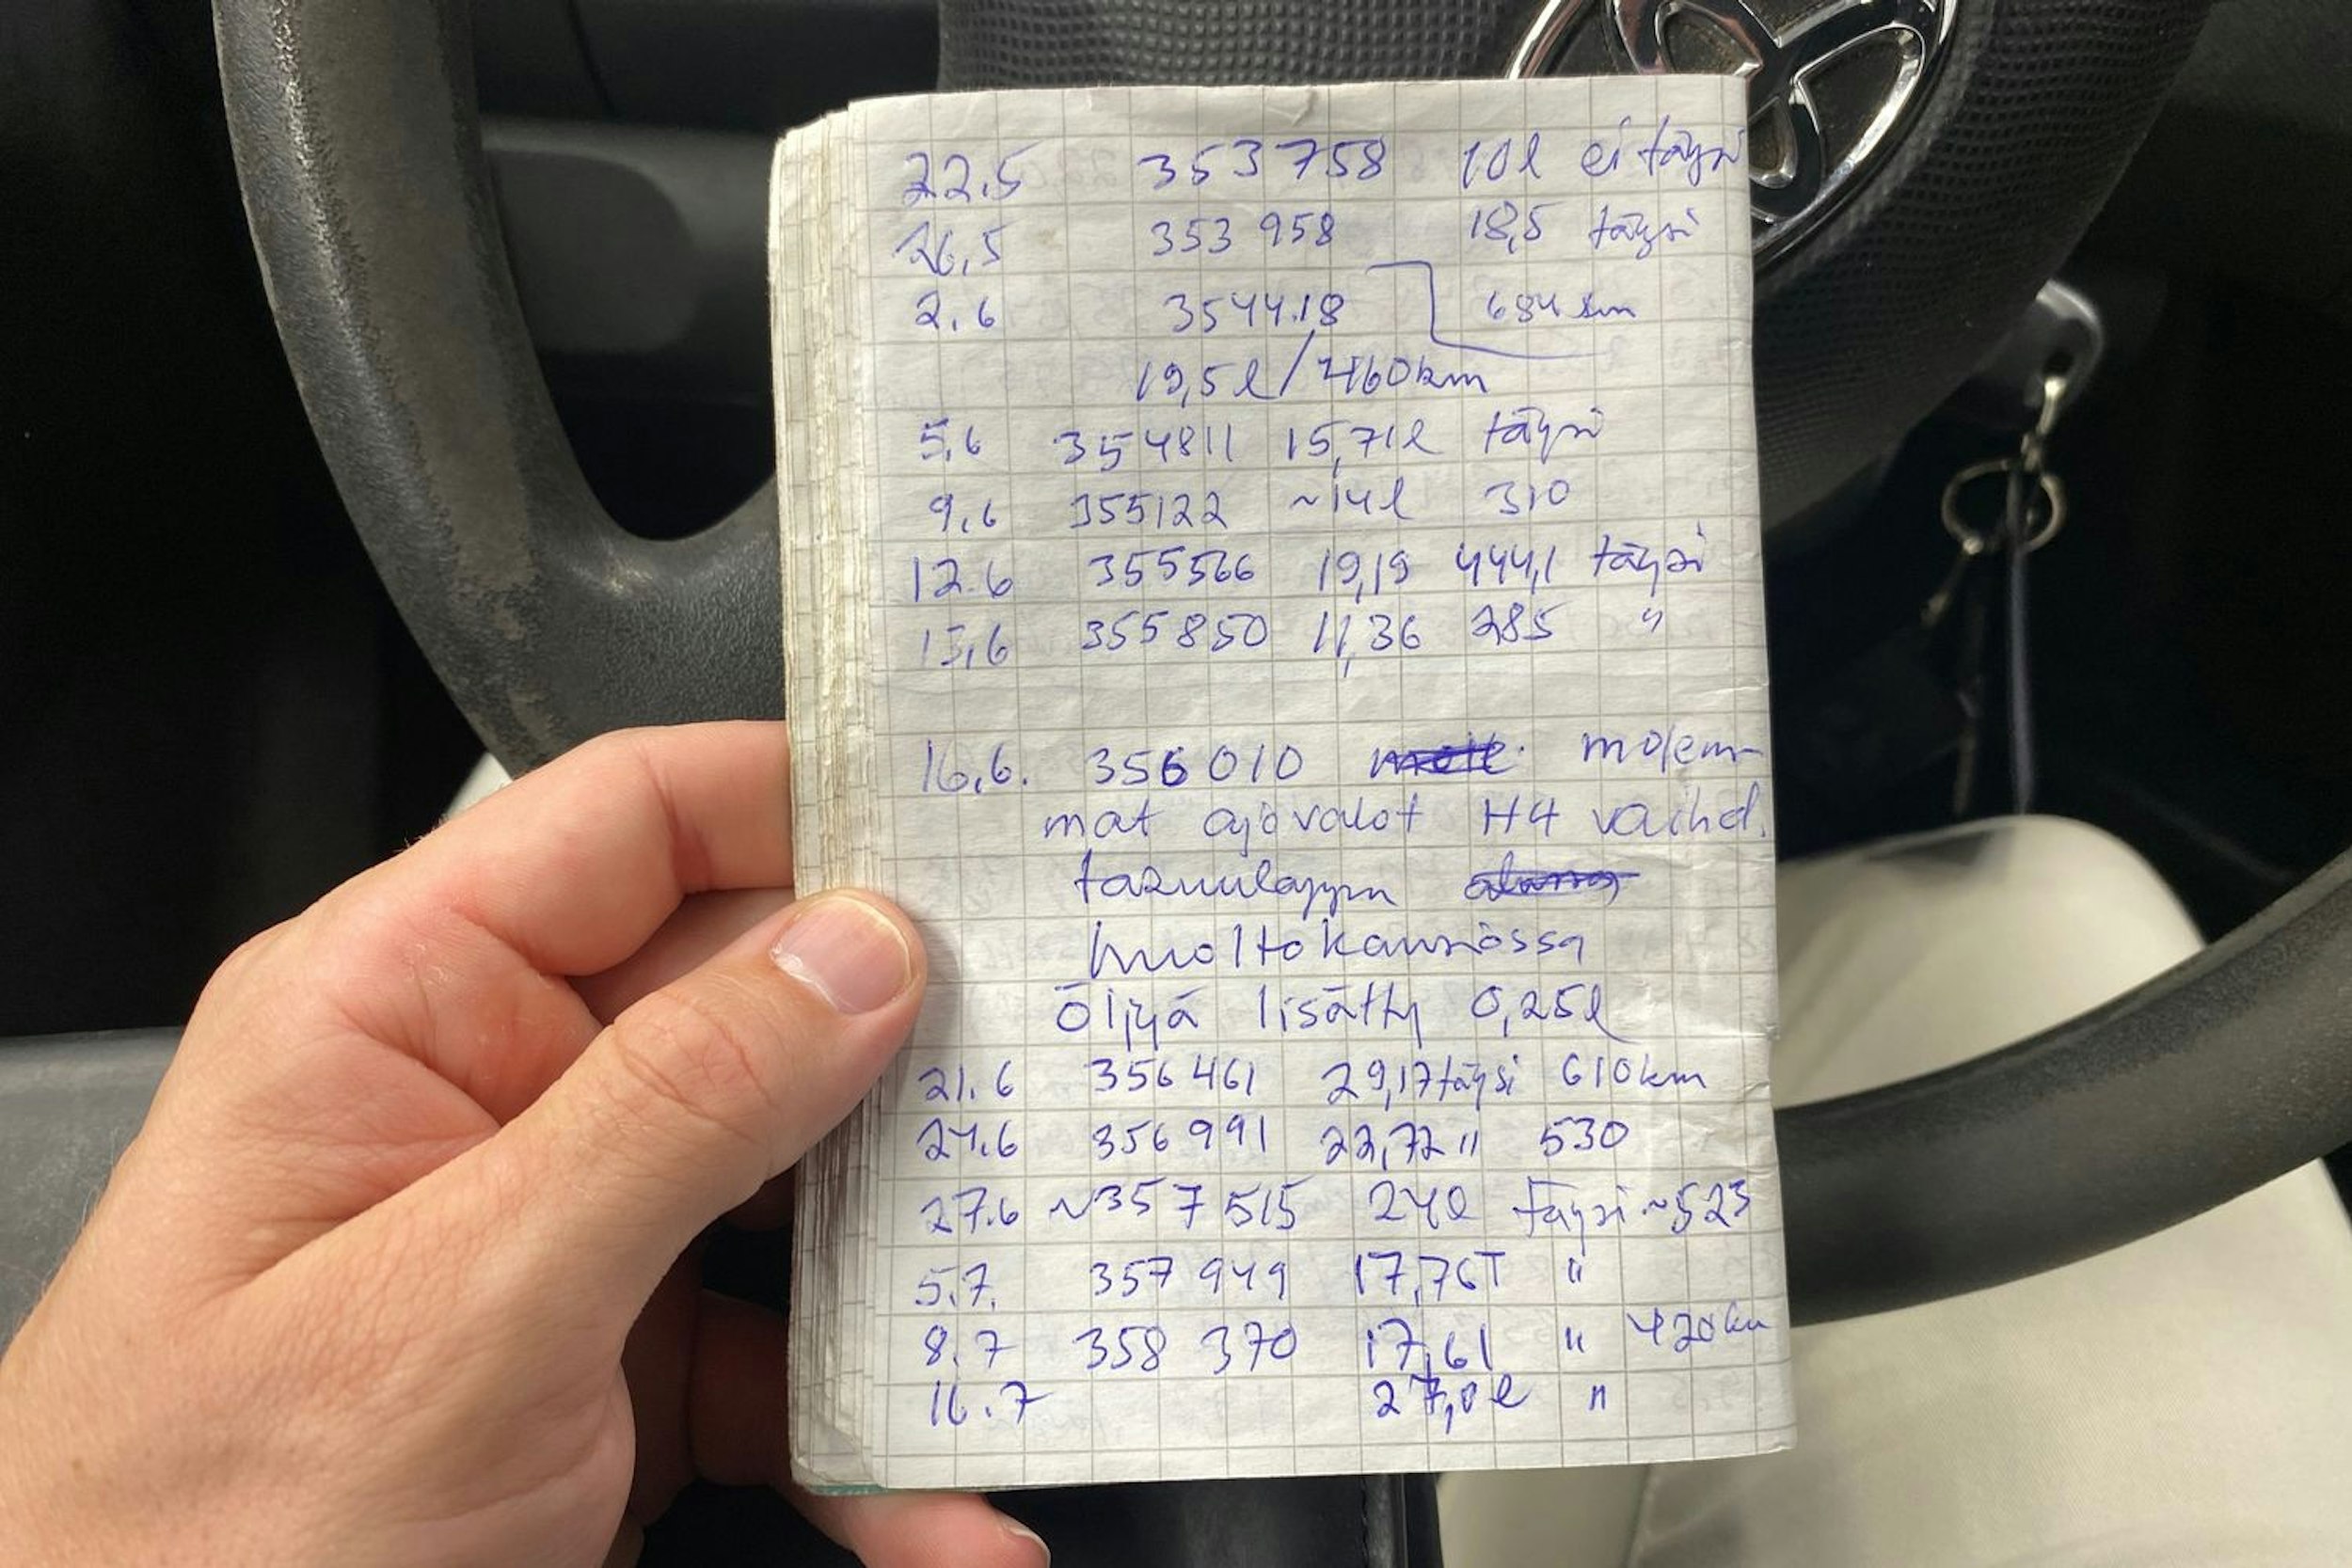 22.5 353758 10l ei täysi
26,5 353 958 18,5 täysi
2.6 354418 684 km
19,5l/460km
5,6 354811 15,71l täysi
9.6 355122 ~14l 310
12.6 355566 19,19 444,1 täysi
13,6 355850 11,36 285 "
16.6. 356010 molem-
mat ajovalot H4 vaihd.
huoltokansiossa
Öljyä lisätty 0,25l
21.6 356461 29,17 täysi 610km
24.6 356991 22,72 " 530
27.6 ~357515 24l täysi ~523
5.7. 357949 17,76T "
8.7 358 370 17,61 " 420km
16.7 27,0l "